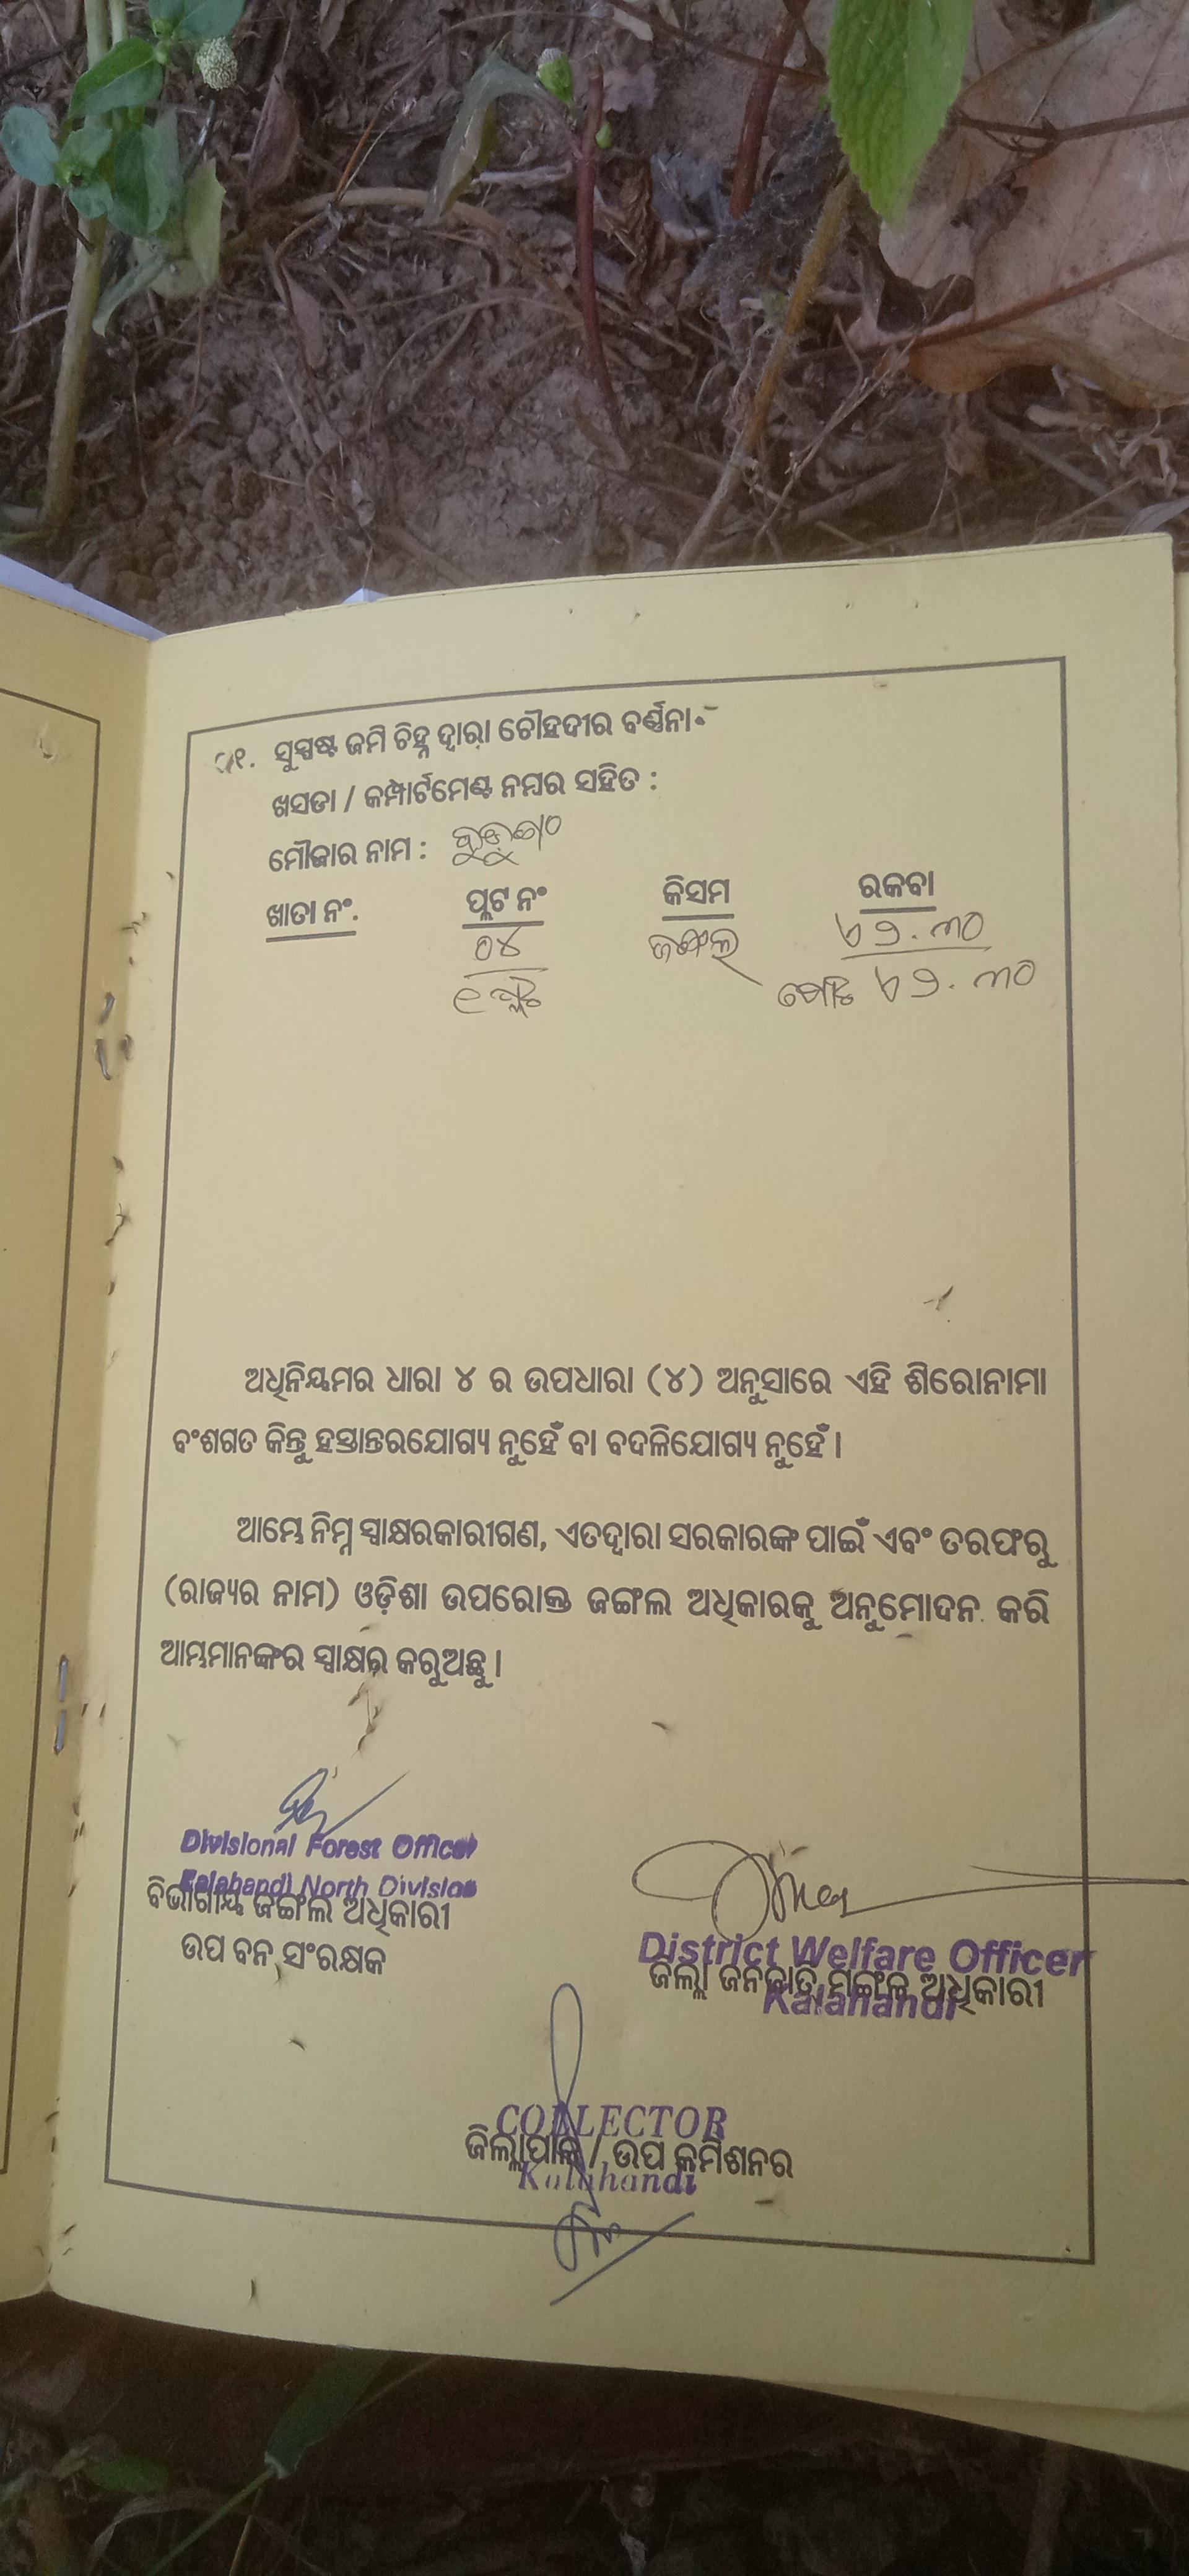 ୧. ସୁସ୍ପଷ୍ଟ ଜମି ଚିହ୍ନ ଦ୍ୱାରା ଚୌହଦୀର ବର୍ଣ୍ଣନା
ଖସଡା / କମ୍ପାର୍ଟମେଣ୍ଟ ନମ୍ବର ସହିତ :
ମୌଜାର ନାମ :
ଖାତା ନଂ. ପ୍ଲଟ ନଂ କିସମ ରକବା
୦୪ ଜଙ୍ଗଲ ୭୨.୩୦
୧ ପ୍ଲଟ ମୋଟ ୭୨.୩୦
ଅଧିନିୟମର ଧାରା ୪ ର ଉପଧାରା (୪) ଅନୁସାରେ ଏହି ଶିରୋନାମା
ବଂଶଗତ କିନ୍ତୁ ହସ୍ତାନ୍ତରଯୋଗ୍ୟ ନୁହେଁ ବା ବଦଳିଯୋଗ୍ୟ ନୁହେଁ।
ଆମ୍ଭେ ନିମ୍ନ ସ୍ୱାକ୍ଷରକାରୀଗଣ, ଏତଦ୍ୱାରା ସରକାରଙ୍କ ପାଇଁ ଏବଂ ତରଫରୁ
(ରାଜ୍ୟର ନାମ) ଓଡ଼ିଶା ଉପରୋକ୍ତ ଜଙ୍ଗଲ ଅଧିକାରକୁ ଅନୁମୋଦନ କରି
ଆମ୍ଭମାନଙ୍କର ସ୍ୱାକ୍ଷର କରୁଅଛୁ।
Divisional Forest Officer
Kalahandi North Division
ବିଭାଗୀୟ ଜଙ୍ଗଲ ଅଧିକାରୀ
ଉପ ବନ ସଂରକ୍ଷକ
District Welfare Officer
ଜିଲ୍ଲା ଜନଜାତି ମଙ୍ଗଳ ଅଧିକାରୀ
Kalahandi
COLLECTOR
ଜିଲ୍ଲାପାଳ / ଉପ କମିଶନର
Kalahandi